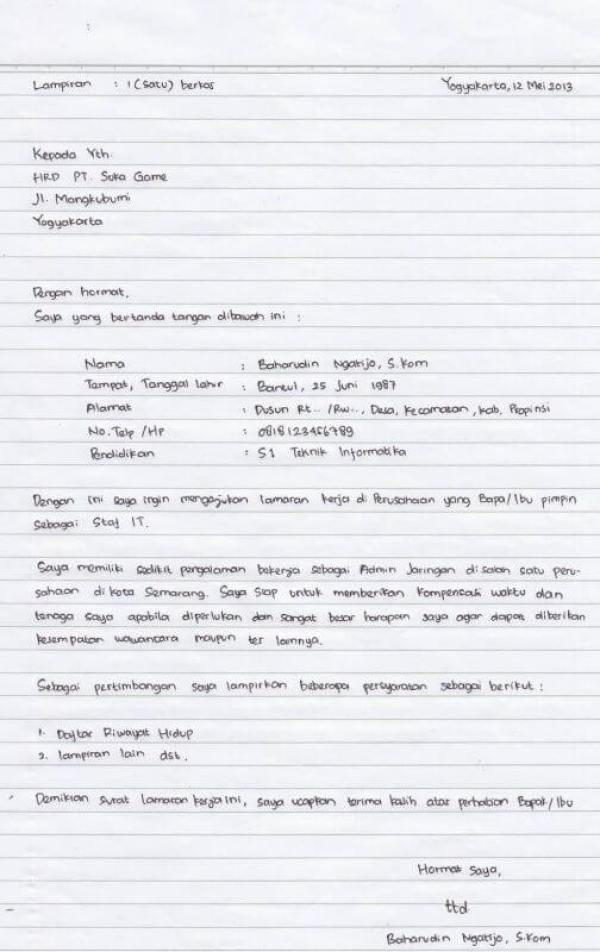 Lampiran : 1 (Satu) berkas Yogyakarta, 12 Mei 2013
Kepada Yth.
HRD PT. Suka Game
Jl. Mangkubumi
Yogyakarta
Dengan hormat,
Saya yang bertanda tangan dibawah ini :
Nama : Baharudin Ngatijo, S.Kom
Tampat, Tanggal lahir : Bantul, 25 Juni 1987
Alamat : Dusun Rt.. /Rw.., Desa, Kecamatan, Kab, Propinsi
No. Telp /HP : 0818123456789
Pendidikan : S1 Teknik Informatika
Dengan ini saya ingin mengajukan lamaran kerja di Perusahaan yang Bapa/Ibu pimpin
Sebagai Staf IT.
Saya memiliki sedikit pengalaman bekerja sebagai Admin Jaringan di salah satu peru-
sahaan di kota Semarang. Saya siap untuk memberikan kompensasi waktu dan
tenaga saya apabila diperlukan dan sangat besar harapan saya agar dapat diberikan
kesempatan wawancara maupun tes lainnya.
Sebagai pertimbangan saya lampirkan beberapa persyaratan sebagai berikut :
1. Daftar Riwayat Hidup
2. lampiran lain dst.
Demikian surat lamaran kerja ini, saya ucapkan terima kasih atas perhatian Bapak/Ibu
Hormat Saya,
ttd
Baharudin Ngatijo, S.Kom